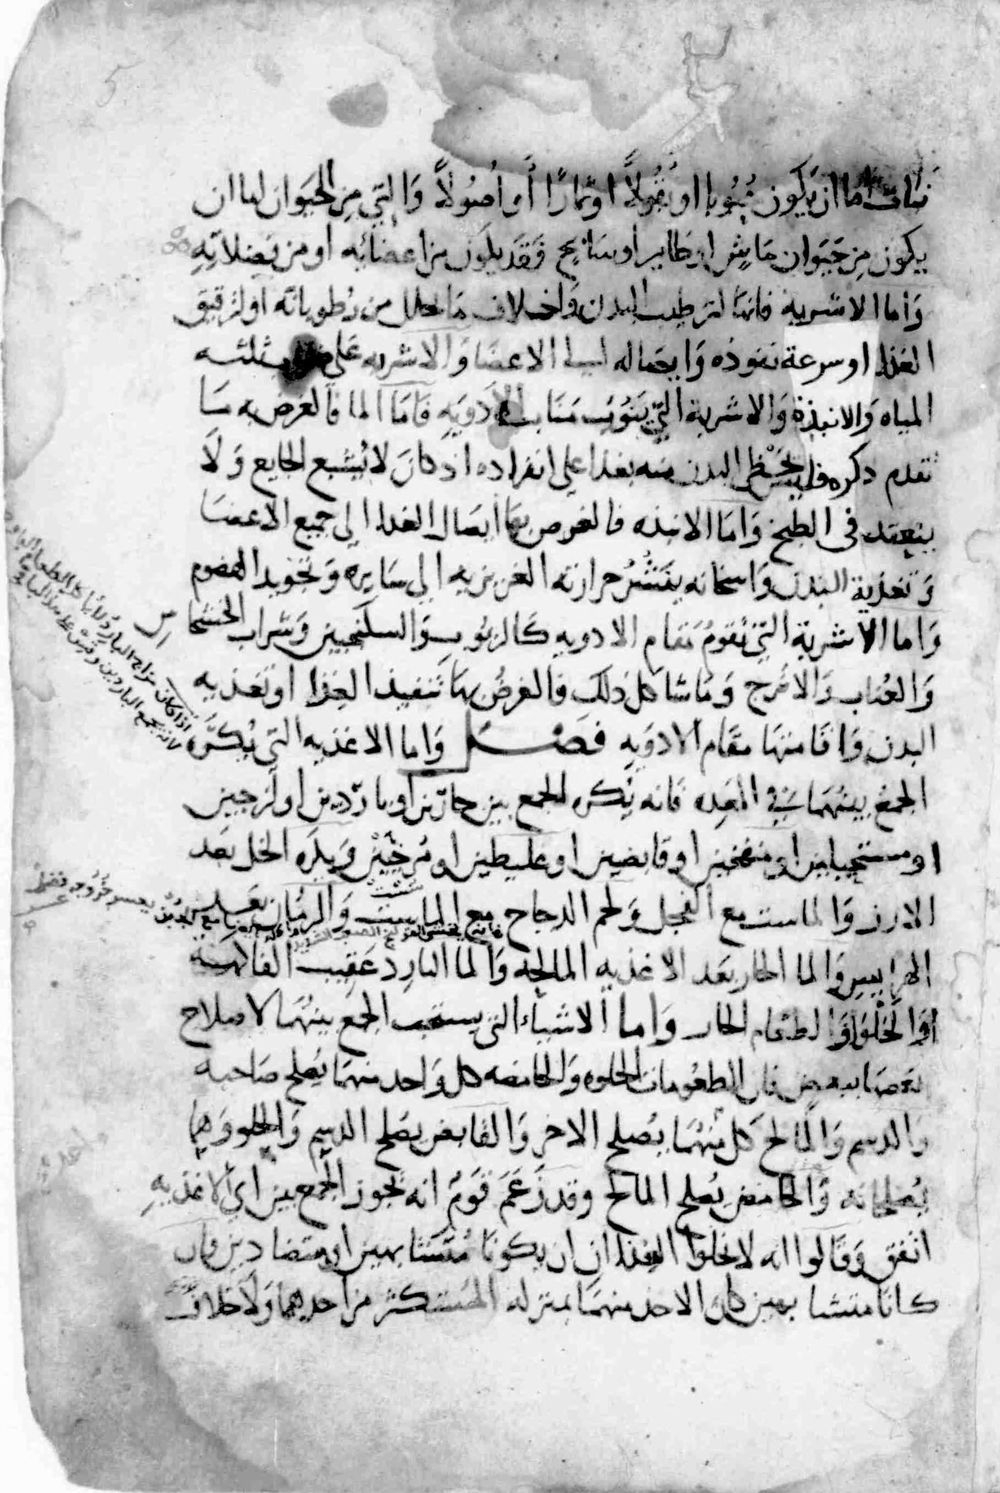 5
نبات اما ان يكون حبوبا او بقولاً او ثمارًا أو أصولاً وَالتي مِن الحيَوان اما ان
يكون مِن حيَوان ماشٍ او طاير او سابح فقد يكون من اعضائه او من فضلاتِهِ
وَاما الاشربة فانها لترطيب البدن وَاخلاف مَا تحلل من رُطوباته او لترقيق
الغذا او سرعة نفوذه وَايصاله الى الاعضا وَالاشربه عَلى ثلثه
المياه وَالانبذة وَالاشربة التي تنوب مَنَاب الأدويَهِ فَامَا الما فالغرض به مَا
تقدم ذكره فليس يحظى البدن منه بغذا على انفراده اذ كانَ لا يُشبع الجايع وَلا
ينعقد في الطبخ وَامَا الانبذه فالغرض بها ايصال الغدا الى جميع الاعضَا
وَتغذية البدن وَاسخانه بنَشْر حرارته الغريزيه الى سَايره وَتجويد الهضوم
وَاما الأشربة التي تقومُ مَقام الادويه كالربوب وَالسكنجبين وَشراب الخشخاش
وَالعناب وَالاترج وَمَا شاكل ذلك فالغرضُ بهَا تنفيذ الغِذا او تغذيه
البدن وَاقامتهَا مقَام الادوَيهِ فصْل وَاما الاغذيه التي يُكرَه
الجمع بينهمَا في المعِده فانه يُكره الجمع بين حارّين او باردين او لزجين
او مستحيلين او منفخين او قابضين او غليظين او مُرخيَيْن وَيكره الخل بعد
الارز وَالماست مع الفجل وَلحم الدجاج مع الماست وَالرمان بَعد
الهرايس وَالما الحار بعد الاغذيه المالحِه وَالما البارد عَقيب الفاكهة
اوَالحَلْوَا وَالطعَام الحار وَاما الأشيَاء التي يستحب الجمع بينهُمَا لاصلاح
بَعضها ببعض فان الطعومات الحلوه وَالحامضه كل وَاحد منهمَا يُصلح صَاحبه
وَالدسم وَالمالح كل منهُمَا يُصلح الاخر وَالقابض يصلح الدسِم وَالحلو وَهما
يُصلحانه وَالحامض يُصلح المالح وقد زَعَمَ قَومٌ انه يجوز الجمع بين اي الاغذيهِ
اتفق وَقالوا انه لا يخلوا الغذا ان ان يكونا مُتَشابهين او متضادين فان
كانَا متشابهين كان الاخذ منهمَا بمنزله المستكثر من احدهما وَلا خلاف